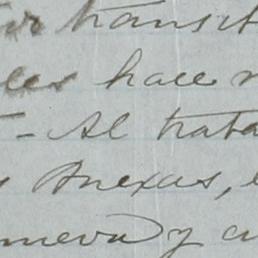 transit
les hace
- Al trata
s Anexas,
nueva y